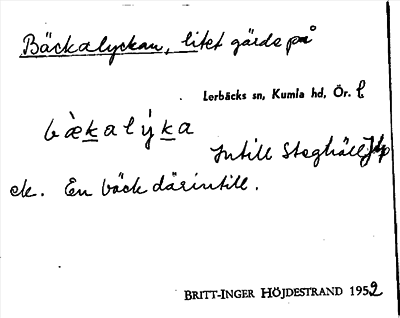 Bäckalyckan, litet gärde på
Lerbäcks sn, Kumla hd, Ör. l
bæ̀kalýka
Intill Steghäll
ek. En bäck därintill.
BRITT-INGER HÖJDESTRAND 1952